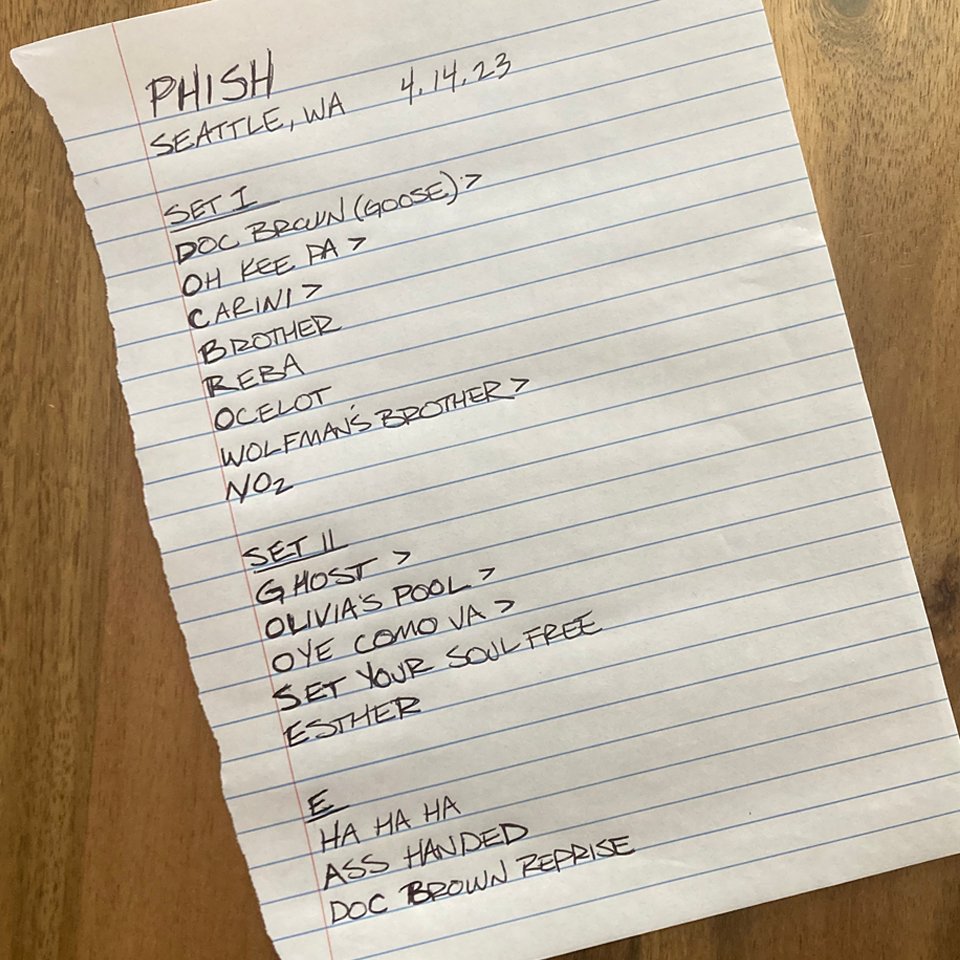 PHISH
SEATTLE, WA 4.14.23
SET I
DOC BROWN (GOOSE) >
OH KEE PA >
CARINI >
BROTHER
REBA
OCELOT
WOLFMAN'S BROTHER >
NO2
SET II
GHOST >
OLIVIA'S POOL >
OYE COMO VA >
SET YOUR SOUL FREE
ESTHER
E
HA HA HA
ASS HANDED
DOC BROWN REPRISE